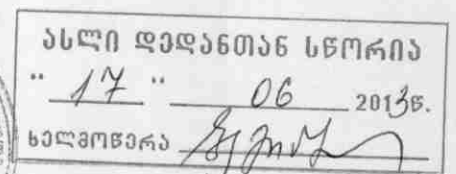 ასლი დედანთან სწორია
" 17 " 06 2013წ.
ხელმოწერა